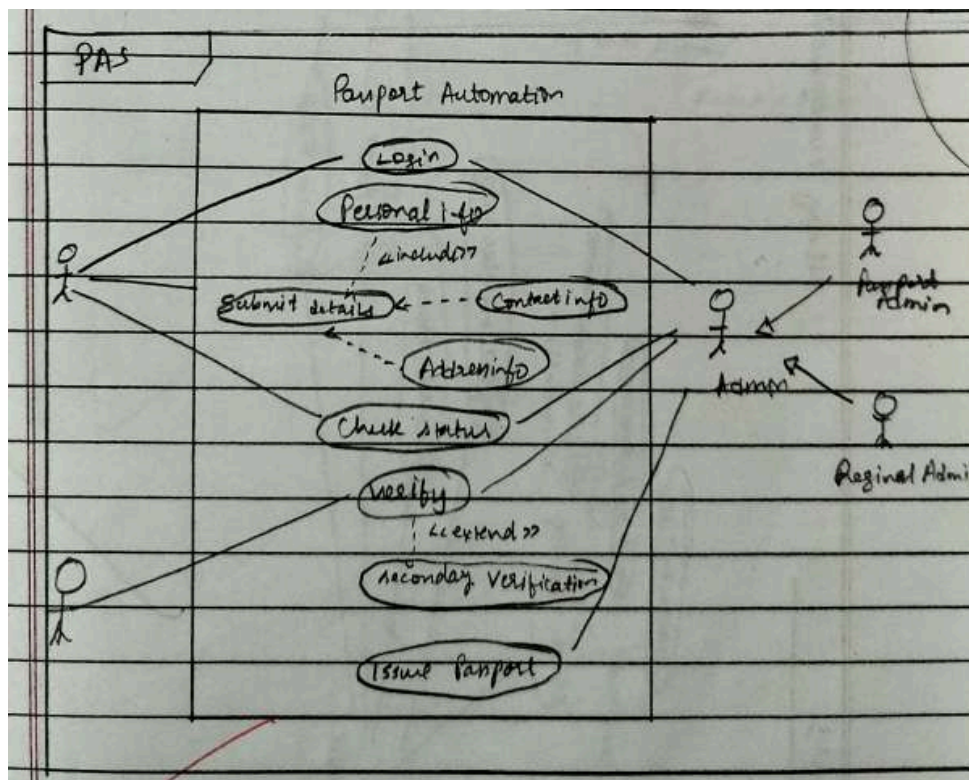 PAS
Passport Automation
Login
Personal info
<<include>>
Submit details
Contact info
Address info
Check status
Verify
<<extend>>
seconday verification
Issue Passport
Admin
Passport Admin
Reginal Admi